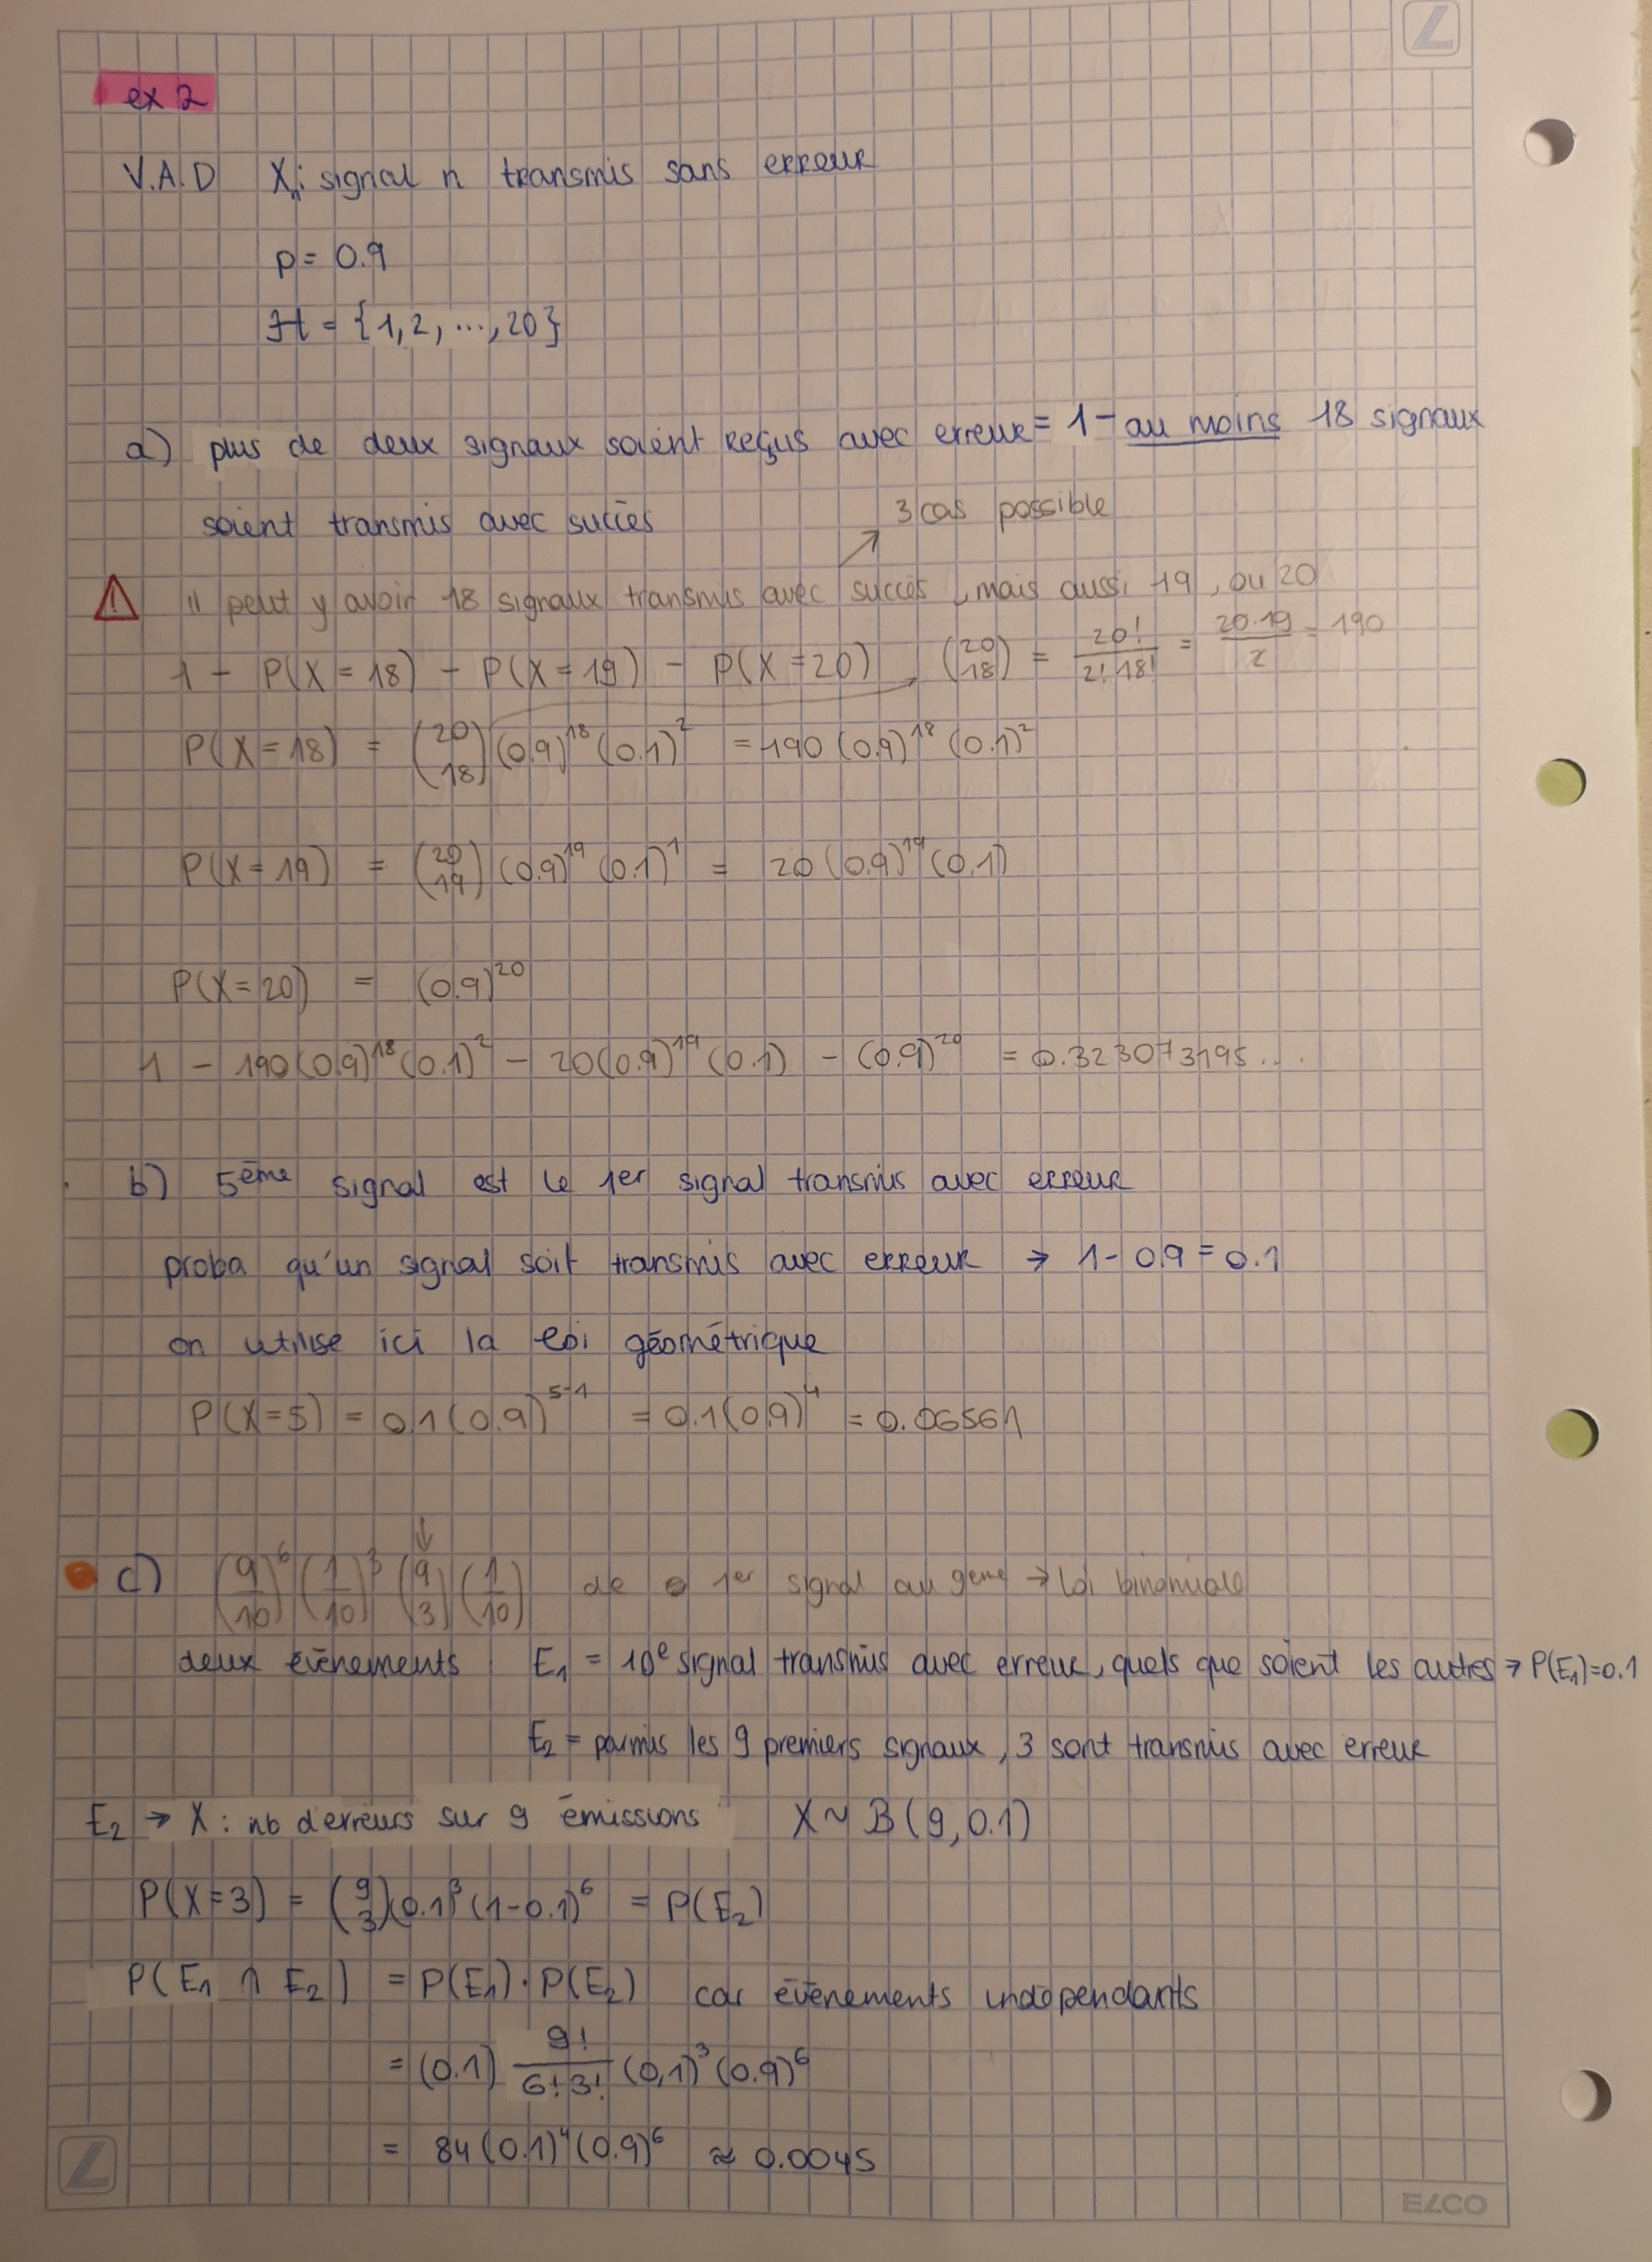 ex 2
V.A.D Xn: signal n transmis sans erreur
p = 0.9
H = {1, 2, ..., 20}
a) plus de deux signaux soient reçus avec erreur = 1 - au moins 18 signaux
soient transmis avec succès
3 cas possible
il peut y avoir 18 signaux transmis avec succès, mais aussi 19, ou 20
1 - P(X = 18) - P(X = 19) - P(X = 20) (20 18) = 20! / 2! 18! = 20·19 / 2 = 190
P(X = 18) = (20 18) (0.9)^18 (0.1)^2 = 190 (0.9)^18 (0.1)^2
P(X = 19) = (20 19) (0.9)^19 (0.1)^1 = 20 (0.9)^19 (0.1)
P(X = 20) = (0.9)^20
1 - 190 (0.9)^18 (0.1)^2 - 20 (0.9)^19 (0.1) - (0.9)^20 = 0.323073195...
b) 5ème signal est le 1er signal transmis avec erreur
proba qu'un signal soit transmis avec erreur → 1 - 0.9 = 0.1
on utilise ici la loi géométrique
P(X = 5) = 0.1 (0.9)^5-1 = 0.1 (0.9)^4 = 0.06561
c) (9/10)^6 (1/10)^3 (9 3) (1/10) de 1er signal au 9ème → loi binomiale
deux évènements E1 = 10e signal transmis avec erreur, quels que soient les autres → P(E1) = 0.1
E2 = parmis les 9 premiers signaux, 3 sont transmis avec erreur
E2 → X : nb d'erreurs sur 9 émissions X ~ B(9, 0.1)
P(X = 3) = (9 3) (0.1)^3 (1 - 0.1)^6 = P(E2)
P(E1 ∩ E2) = P(E1) · P(E2) car évènements indépendants
= (0.1) 9! / 6! 3! (0,1)^3 (0.9)^6
= 84 (0.1)^4 (0.9)^6 ≈ 0.0045
ELCO